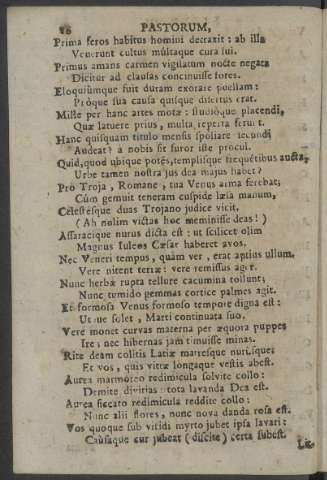 10 PASTORUM,
Prima feros habitus homini detraxit: ab illa
Venerunt cultus mûltaque cura sui.
Primus amans carmen vigilatum nocte negata
Dicitur ad clausas concinuisse fores.
Eloquiúmque fuit duram exorare puellam:
Próque sua causa quisque disertus erat.
Mille per hanc artes motæ: studióque placendi,
Quæ latuere prius, multa reperta ferunt.
Hanc quisquam titulo mensis spoliare secundi
Audeat? à nobis sit furor iste procul.
Quid, quod ubique potẽs, templisque frequẽtibus aucta,
Urbe tamen nostra jus dea majus habet?
Pro Troja, Romane, tua Venus arma ferebat;
Cùm gemuit teneram cuspide læsa manum,
Cœlestésque duas Trojano judice vicit,
(Ah nolim victas hoc meminisse deas!)
Assaracique nurus dicta est: ut scilicet olim
Magnus Iuleos Cæsar haberet avos.
Nec Veneri tempus, quàm ver, erat aptius ullum.
Vere nitent terræ: vere remissus ager.
Nunc herbæ rupta tellure cacumina tollunt;
Nunc tumido gemmas cortice palmes agit.
Et formosa Venus formoso tempore digna est:
Utque solet, Marti continuata suo.
Vere monet curvas materna per æquora puppes
Ire; nec hibernas jam timuisse minas.
Rite deam colitis Latiæ matresque nurusque;
Et vos, quis vittæ longaque vestis abest.
Aurea marmoreo redimicula solvite collo:
Demite divitias: tota lavanda Dea est.
Aurea siccato redimicula reddite collo:
Nunc alii flores, nunc nova danda rosa est.
Vos quoque sub viridi myrto jubet ipsa lavari:
Causaque cur jubeat (discite) certa subest.